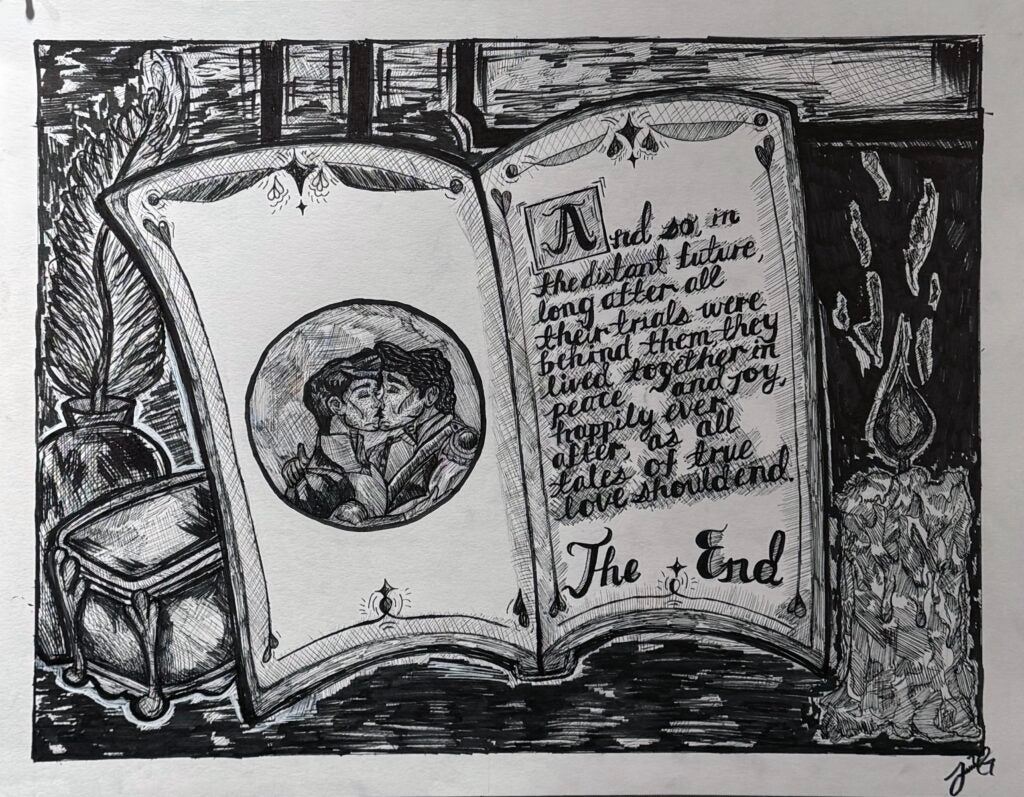 And so, in
the distant future,
long after all
their trials were
behind them they
lived together in
peace and joy,
happily ever
after, as all
tales of true
love should end.
The End